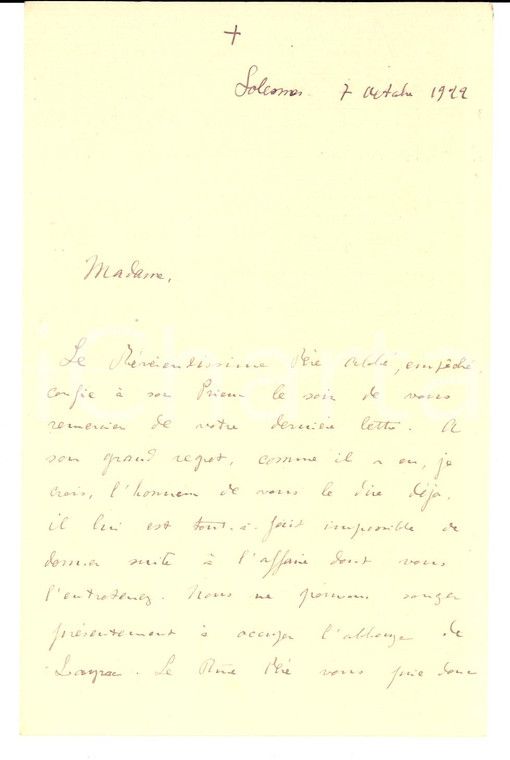 +
Solesmes. 7 Octobre 1922
Madame,
Le Révérendissime Père Abbé, empêché,
confie à son Prieur le soin de vous
remercier de votre dernière lettre. A
son grand regret, comme il a eu, je
crois, l'honneur de vous le dire déjà.
il lui est tout-à-fait impossible de
donner suite à l'affaire dont vous
l'entretenez. Nous ne pouvons songer
présentement à occuper l'abbaye de
Layrac. Le Rme Père vous prie donc
iCharta